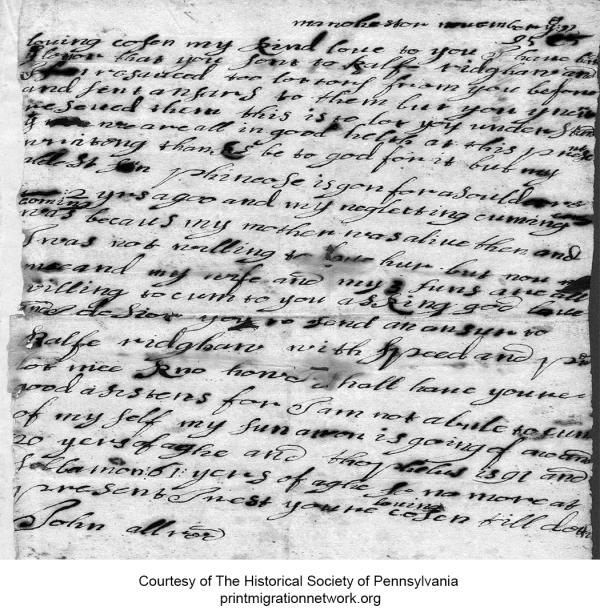 manchester november ye 27
loving cosen my kind love to you I have
letor that you sent to Ralfe ridghaw and
I resued too lettors from you before
and sent ansurs to them but you never
reseved them this is to let you understand
that wee are all in good helth at this presant
writong thanks be to god for it but my
aldest sun phincose is gon for a sould
2 yrs agoo and my neglerting cuming
coming
was becaus my mother was alive then and
I was not willing to leve hur but now
me and my wife and my 2 suns are all
willing to cum to you asking god leave
and I desior you to send an ansur to
Ralfe ridghaw with speed and
let mee kno hone I shall have youre
good asistens for I am not abule to cum
of my self my sun aron is going of
20 yers of aghe and theophelus is 91 and
sollamon 61 yers of aghe so no more at
present I rest youre loving cosen till deth
John allred
Courtesy of The Historical Society of Pennsylvania
printmigrationnetwork.org